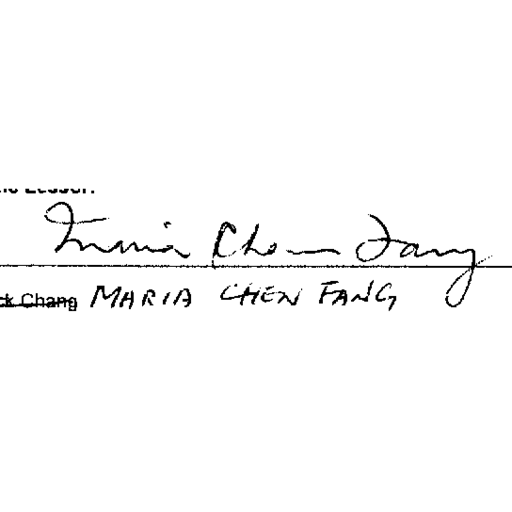 Lessor:
Maria Chen Fang
ck Chang MARIA CHEN FANG